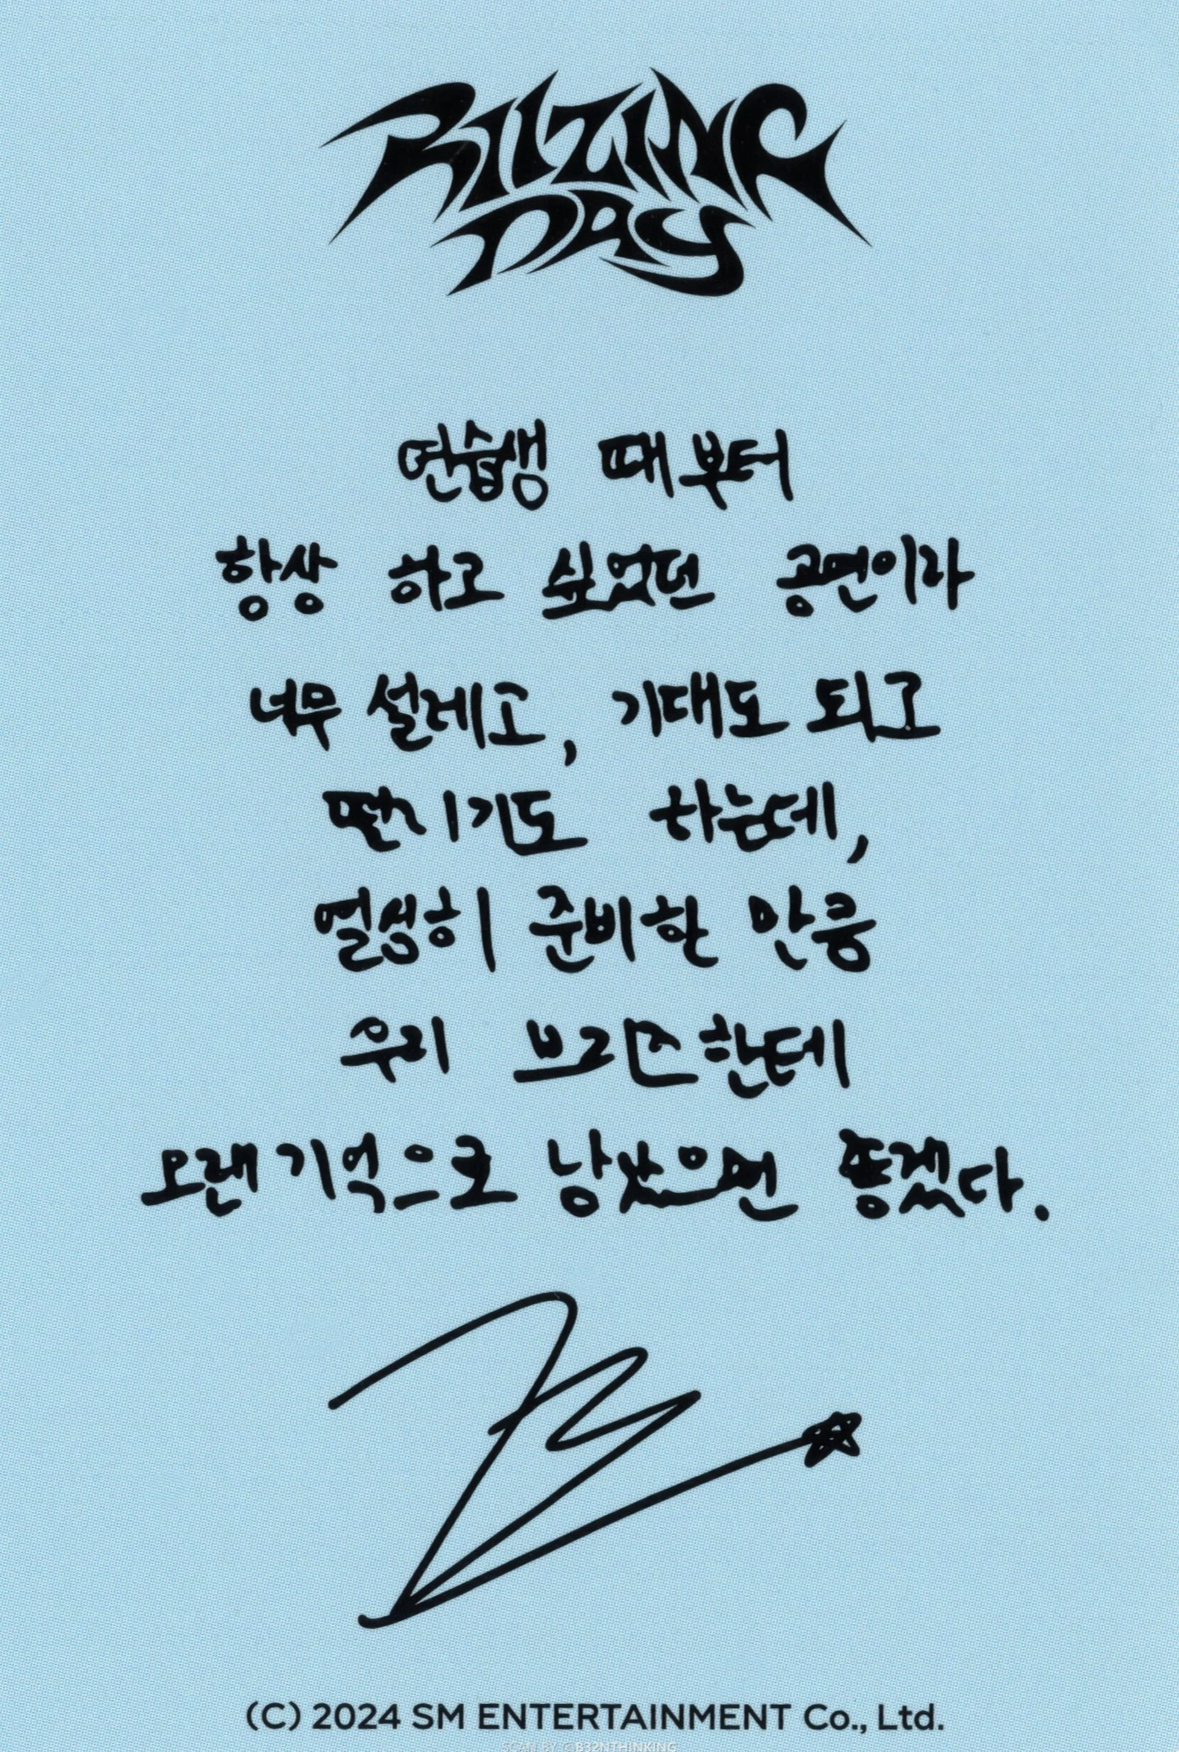 RIIZING
DAY
연습생 때부터
항상 하고 싶었던 공연이라
너무 설레고, 기대도 되고
떨리기도 하는데,
열심히 준비한 만큼
우리 브리즈한테
오랜 기억으로 남았으면 좋겠다.
(C) 2024 SM ENTERTAINMENT Co., Ltd.
SCAN BY @B32NTHINKING